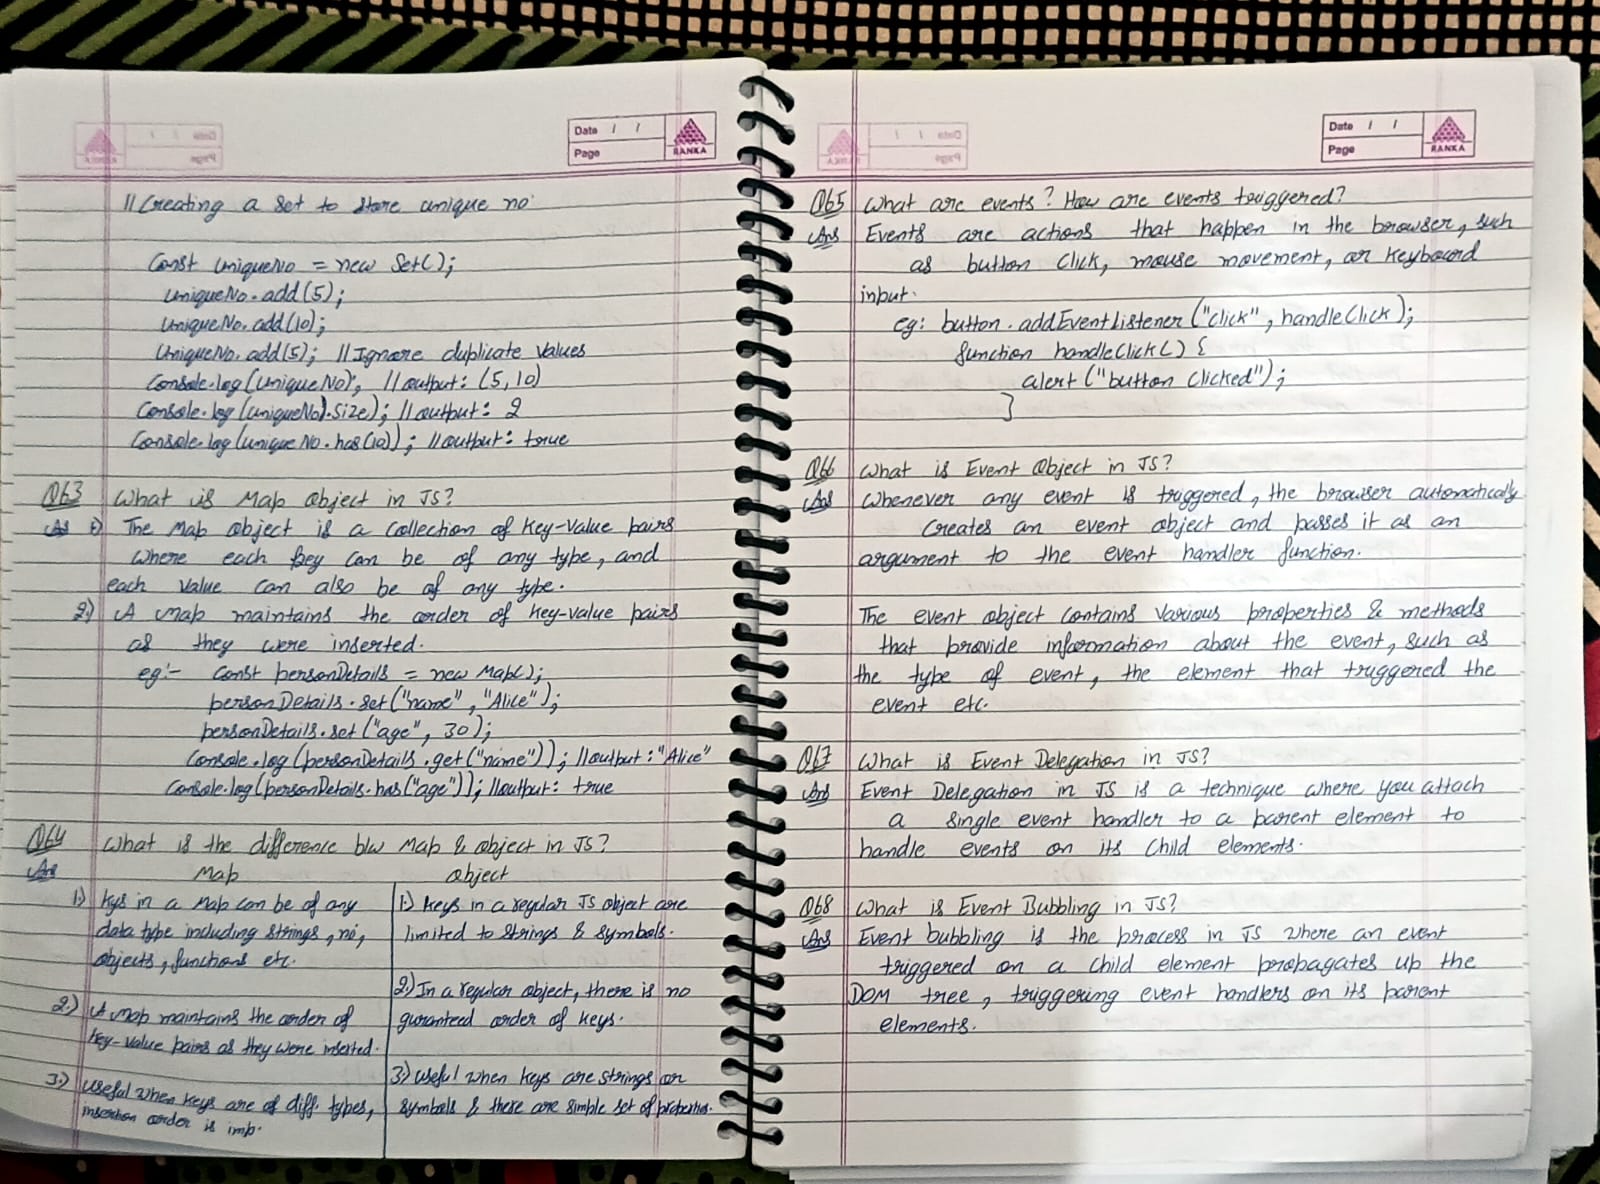 Date / /
Page
RANKA
// Creating a set to store unique no.
Const uniqueNo = new Set();
uniqueNo.add(5);
uniqueNo.add(10);
uniqueNo.add(5); // Ignore duplicate values
Console.log(uniqueNo); // output: (5, 10)
Console.log(uniqueNo.size); // output: 2
Console.log(uniqueNo.has(10)); // output: true
Q63 What is Map Object in JS?
Ans 1) The Map object is a collection of key-value pairs
where each key can be of any type, and
each value can also be of any type.
2.) A Map maintains the order of key-value pairs
as they were inserted.
eg:- Const personDetails = new Map();
personDetails.set("name", "Alice");
personDetails.set("age", 30);
Console.log(personDetails.get("name")); // output: "Alice"
Console.log(personDetails.has("age")); // output: true
Q64 What is the difference b/w Map & object in JS?
Ans Map
1.) Kys in a Map can be of any
data type including strings, no.,
objects, functions etc.
2.) A Map maintains the order of
key-value pairs as they were inserted.
3.) Useful when keys are of diff. types,
insertion order is imp.
object
1.) Keys in a regular JS object are
limited to strings & symbols.
2.) In a regular object, there is no
guranteed order of keys.
3.) Useful when keys are strings or
symbols & there are simple set of properties.
Date / /
Page
RANKA
Q65 What are events? How are events triggered?
Ans Events are actions that happen in the browser, such
as button click, mouse movement, or keyboard
input.
eg: button.addEventListener("click", handleClick);
function handleClick() {
alert("button clicked");
}
Q66 What is Event Object in JS?
Ans Whenever any event is triggered, the browser automatically
creates an event object and passes it as an
argument to the event handler function.
The event object contains various properties & methods
that provide information about the event, such as
the type of event, the element that triggered the
event etc.
Q67 What is Event Delegation in JS?
Ans Event Delegation in JS is a technique where you attach
a single event handler to a parent element to
handle events on its child elements.
Q68 What is Event Bubbling in JS?
Ans Event bubbling is the process in JS where an event
triggered on a child element propagates up the
DOM tree, triggering event handlers on its parent
elements.